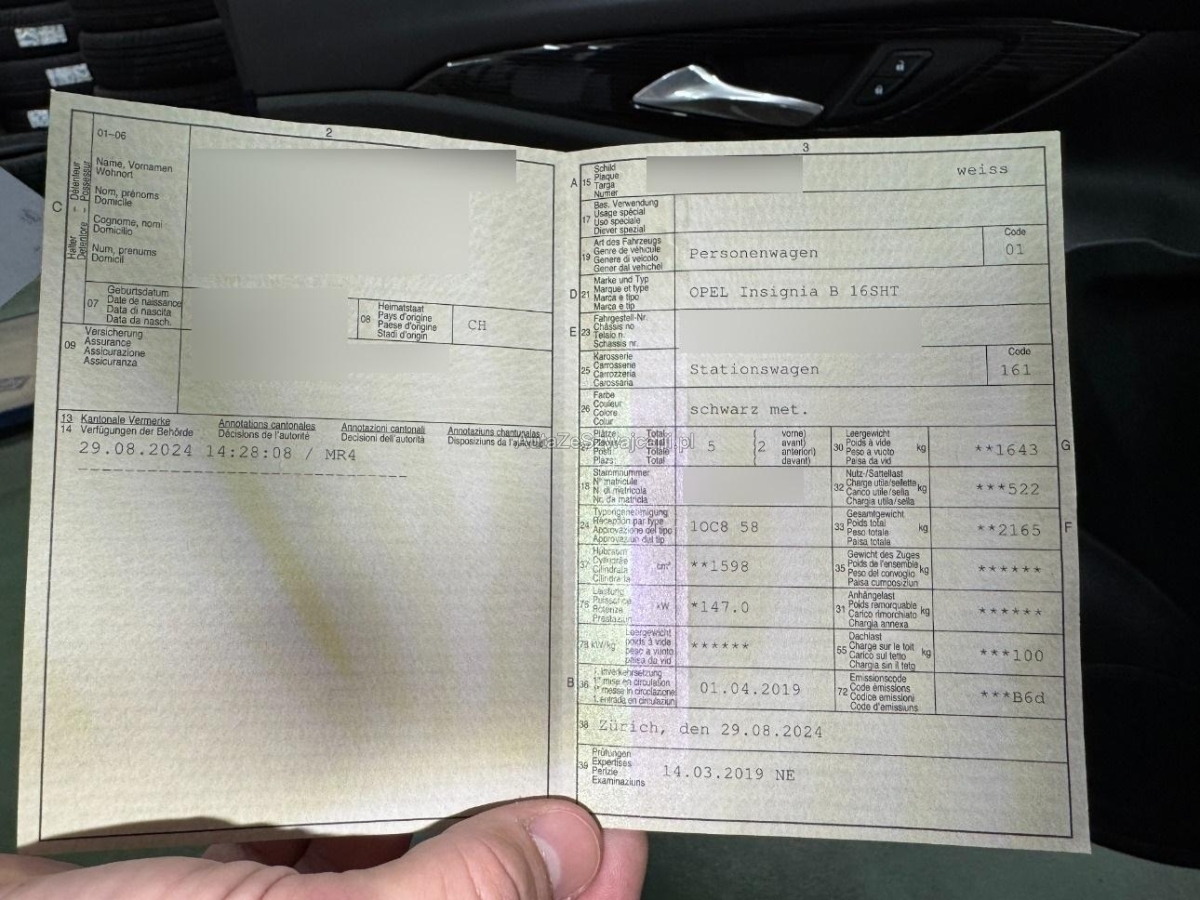 2
01-06
C
Halter - Détenteur
Detentore - Possessur
Name, Vornamen
Wohnort
Nom, prénoms
Domicile
Cognome, nomi
Domicilio
Num, prenums
Domicil
07
Geburtsdatum
Date de naissance
Data di nascita
Data da nasch.
08
Heimatstaat
Pays d'origine
Paese d'origine
Stadi d'origin
CH
09
Versicherung
Assurance
Assicurazione
Assicuranza
13 Kantonale Vermerke
14 Verfügungen der Behörde
Annotations cantonales
Décisions de l'autorité
Annotazioni cantonali
Decisioni dell'autorità
Annotaziuns chantunalas
29.08.2024 14:28:08 / MR4
3
A 15
Schild
Plaque
Targa
Numer
weiss
17
Bes. Verwendung
Usage spécial
Uso speciale
Diever spezial
19
Art des Fahrzeugs
Genre de véhicule
Genere di veicolo
Gener dal vehichel
Personenwagen
Code
01
D 21
Marke und Typ
Marque et type
Marca e tipo
Marca e tip
OPEL Insignia B 16SHT
E 23
Fahrgestell-Nr.
Châssis no
Telaio n.
Schassis nr.
25
Karosserie
Carrosserie
Carrozzeria
Carossaria
Stationswagen
Code
161
26
Farbe
Couleur
Colore
Colur
schwarz met.
27
Plätze Total
Total
Posti Totale
Plazs Total
5
(2
vorne)
avant)
anteriori)
davant)
30
Leergewicht
Poids à vide
Peso a vuoto
Paisa da vid
kg
**1643
G
18
Stammnummer
N° matricule
N. di matricola
Nr. da matricla
32
Nutz-/Sattellast
Charge utile/sellette
Carico utile/sella
Chargia utila/sella
kg
***522
24
Typengenehmigung
Réception par type
Approvazione del tipo
Approvaziun dal tip
1OC8 58
33
Gesamtgewicht
Poids total
Peso totale
Paisa totala
kg
**2165
F
37
Hubraum
Cylindrée
Cilindrata
Cilindrada
cm³
**1598
35
Gewicht des Zuges
Poids de l'ensemble
Peso del convoglio
Paisa cumposiziun
kg
******
76
Leistung
Puissance
Potenza
Prestaziun
kW
*147.0
31
Anhängelast
Poids remorquable
Carico rimorchiato
Chargia annexa
kg
******
78 kW/kg
Leergewicht
poids à vide
peso a vuoto
paisa da vid
******
55
Dachlast
Charge sur le toit
Carico sul tetto
Chargia sin il tetg
kg
***100
B 36
1. Inverkehrsetzung
1re mise en circulation
1a messa in circolazione
1. entrada en circulaziun
01.04.2019
72
Emissionscode
Code émissions
Codice emissioni
Code d'emissiuns
***B6d
38
Zürich, den 29.08.2024
39
Prüfungen
Expertises
Perizie
Examinaziuns
14.03.2019 NE